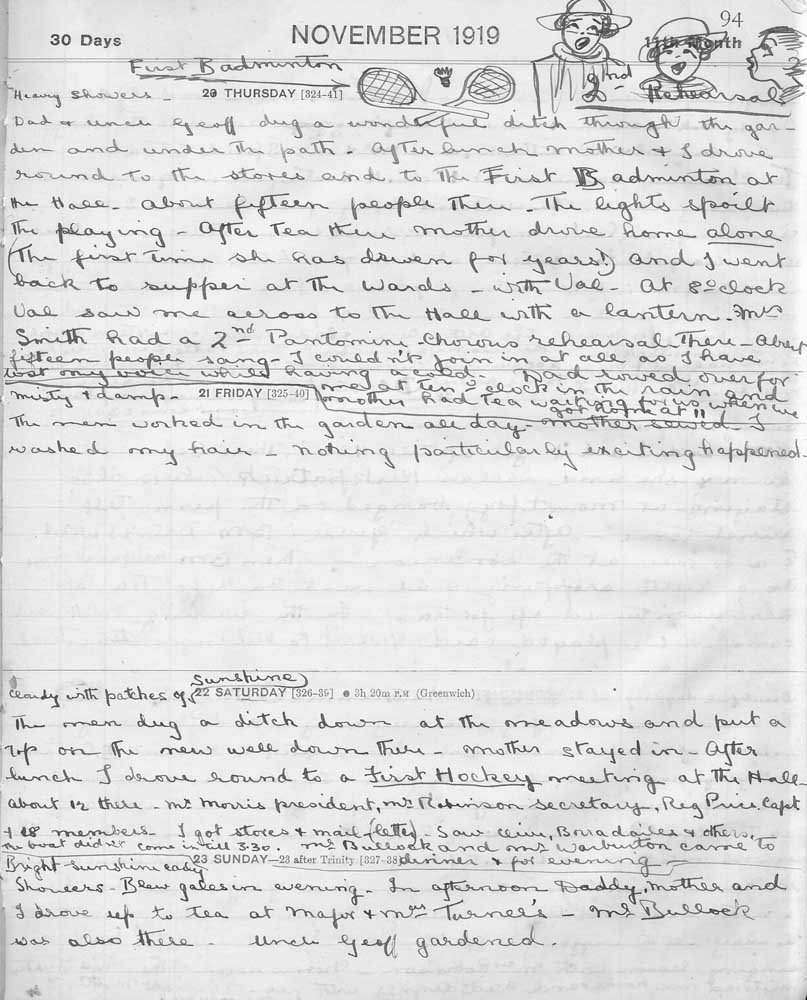 94
30 Days NOVEMBER 1919 11th Month
First Badminton
2nd Rehearsal
Heavy showers - 20 THURSDAY [324-41]
Dad & uncle Geoff dug a wonderful ditch through the gar-
den and under the path. After lunch mother & I drove
round to the stores and to the First Badminton at
the Hall. about fifteen people there. The lights spoilt
the playing - After tea there mother drove home alone
(The first time she has driven for years!) and I went
back to supper at the Wards - with Val - At 8 o'clock
Val saw me across to the Hall with a lantern. Mrs
Smith had a 2nd Pantomine Chorous rehearsal there - About
fifteen people sang - I couldn't join in at all as I have
lost my voice while having a cold. Dad rowed over for
me at ten o'clock in the rain and
mother had tea waiting for us when we
got home at 11
misty & damp - 21 FRIDAY [325-40]
The men worked in the garden all day - mother sewed I
washed my hair - nothing particularly exciting happened.
cloudy with patches of sunshine
22 SATURDAY [326-39] ● 3h 20m P.M (Greenwich)
The men dug a ditch down at the meadows and put a
top on the new well down there - mother stayed in - After
lunch I drove round to a First Hockey meeting at the Hall -
about 12 there - Mr Morris president, Mr Robinson secretary, Reg Price Capt
+ 18 members - I got stores & mail (letter). Saw Borradailes & others,
the boat didn't come in till 3.30. Mr Bullock and Mr Warburton came to
dinner & for evening
Bright sunshine early 23 SUNDAY—23 after Trinity [327-38]
Showers - Blew gales in evening. In afternoon Daddy, mother and
I drove up to tea at Major & Mrs Turner's - Mr Bullock
was also there. uncle Geoff gardened.